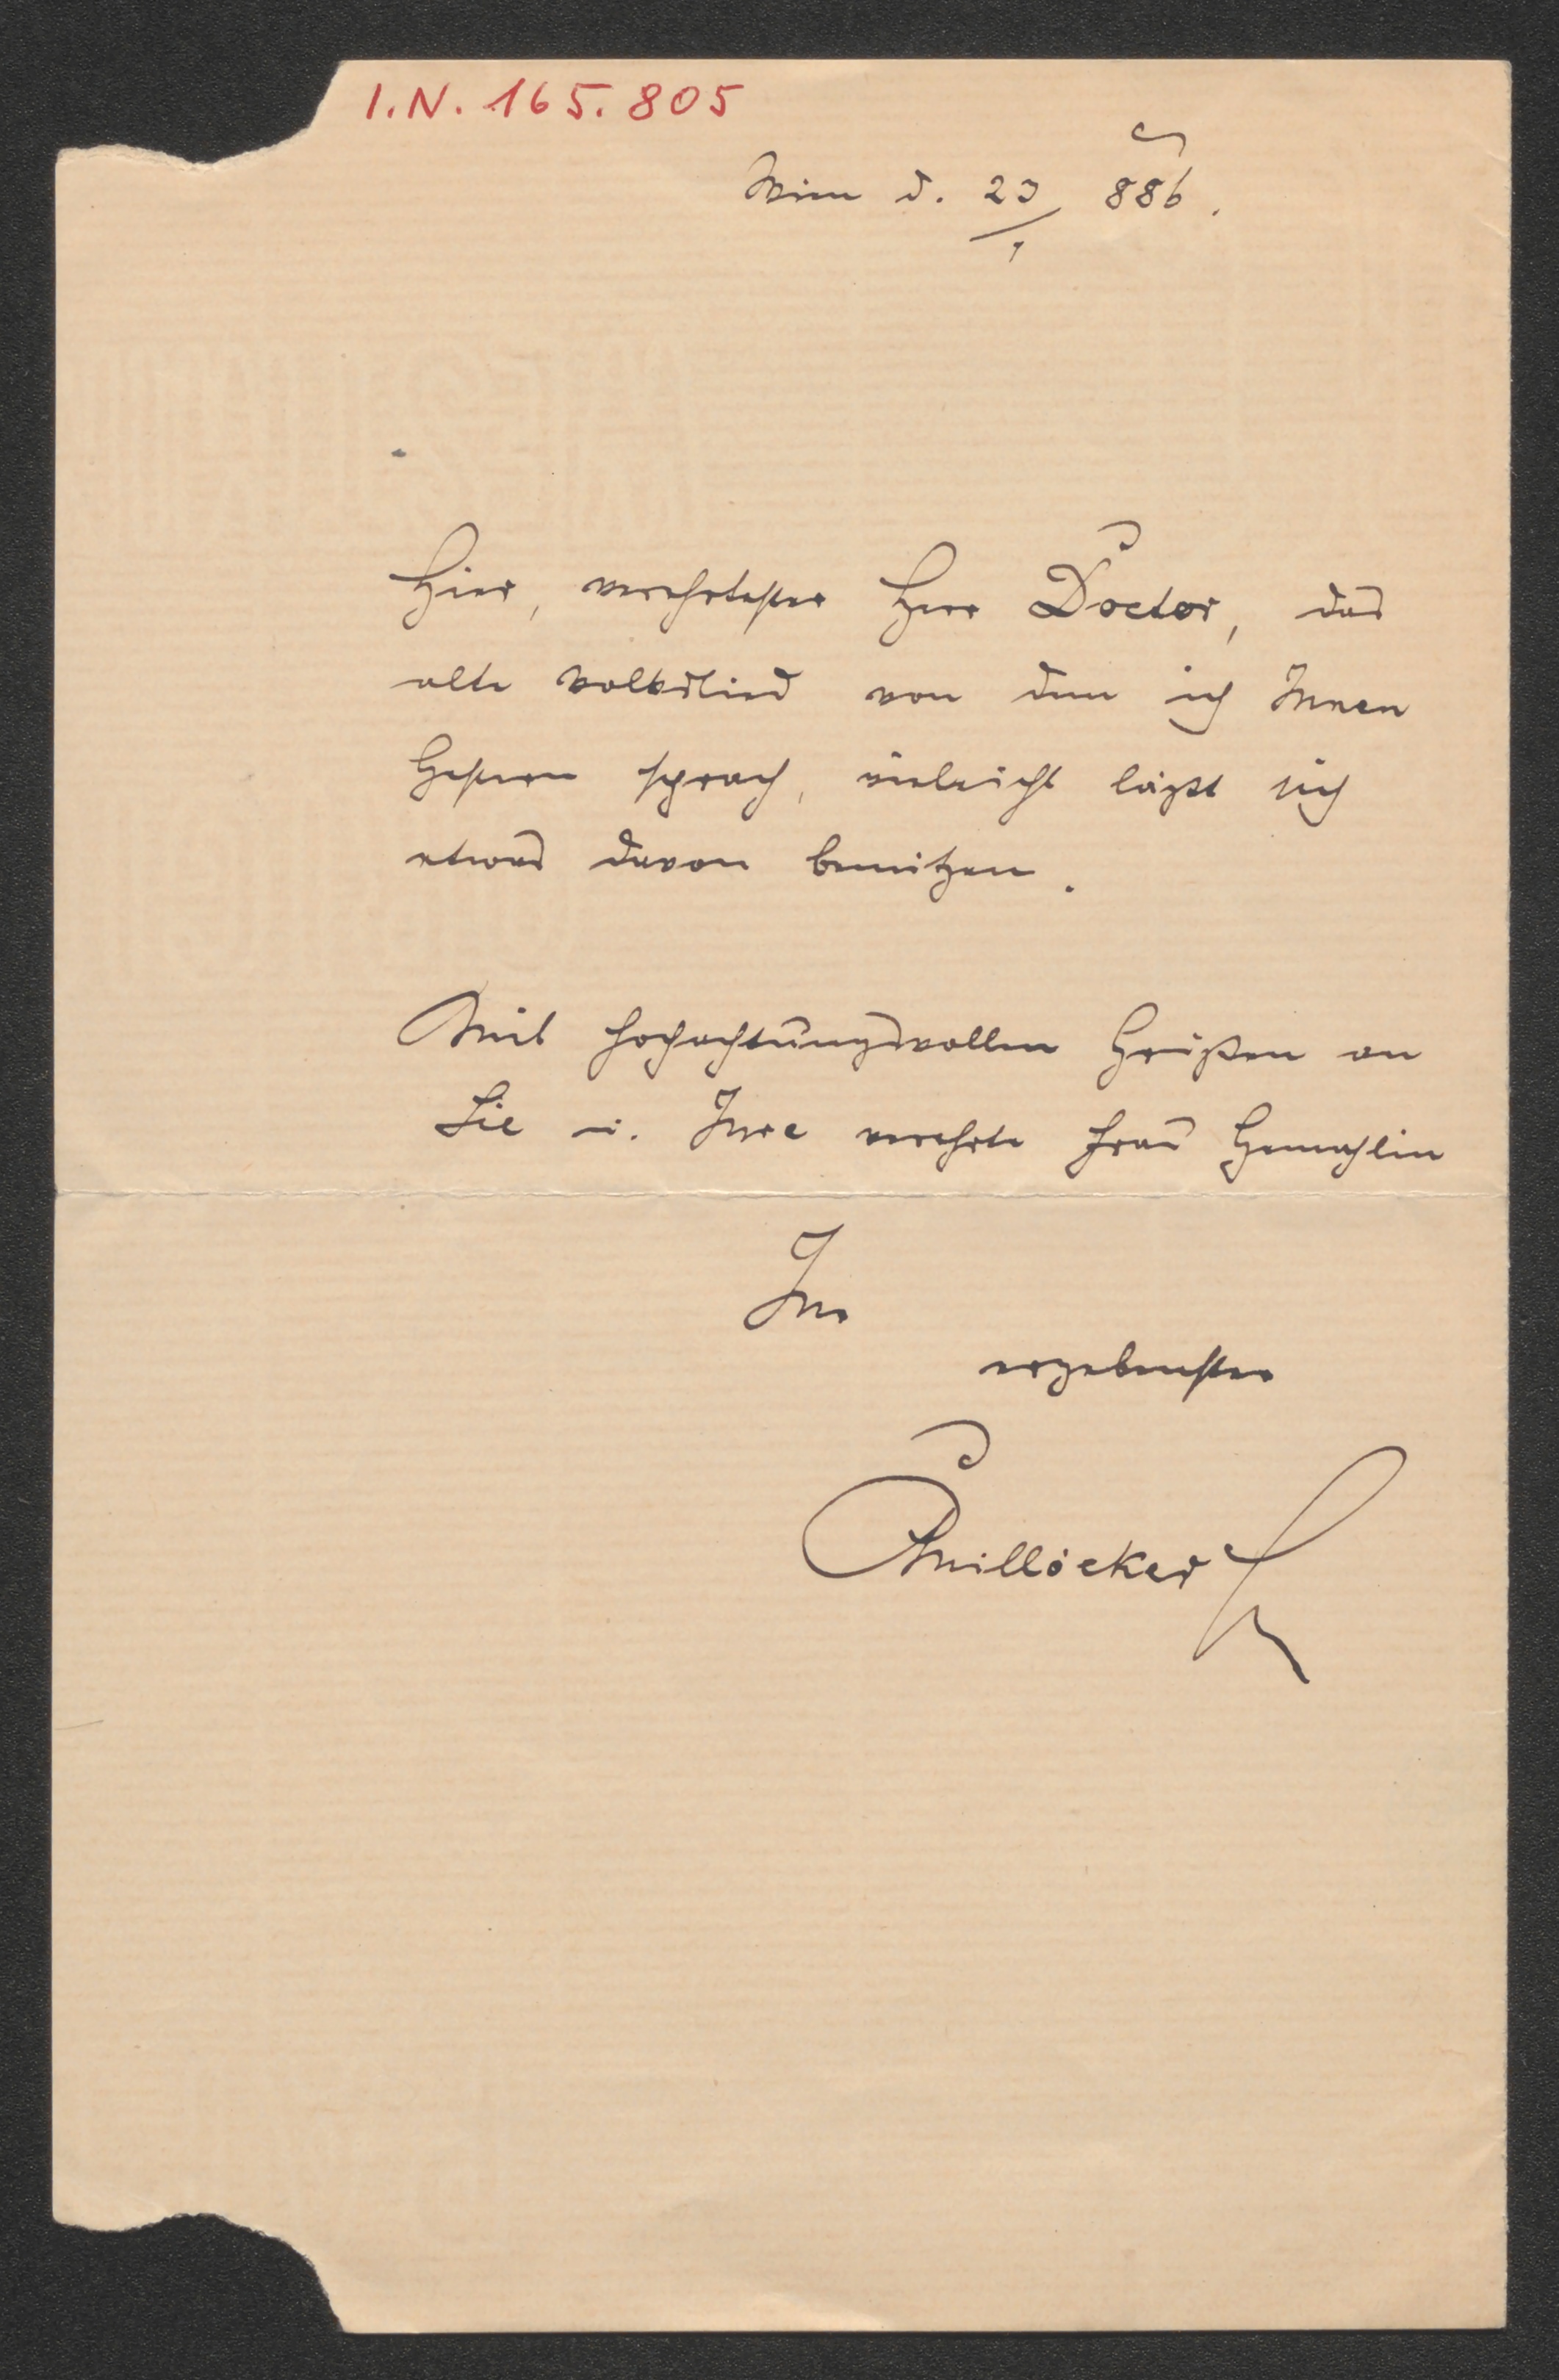 I.N. 165.805
Wien d. 23/1 886.
Hier, verehrtester Herr Doctor, das
alte Volkslied von dem ich Ihnen
Gestern sprach, vieleicht läßt sich
etwas davon benützen.
Mit hochachtungsvollen Grüßen an
Sie u. Ihre verehrte Frau Gemahlin
Ihr
ergebenster
CMillöcker